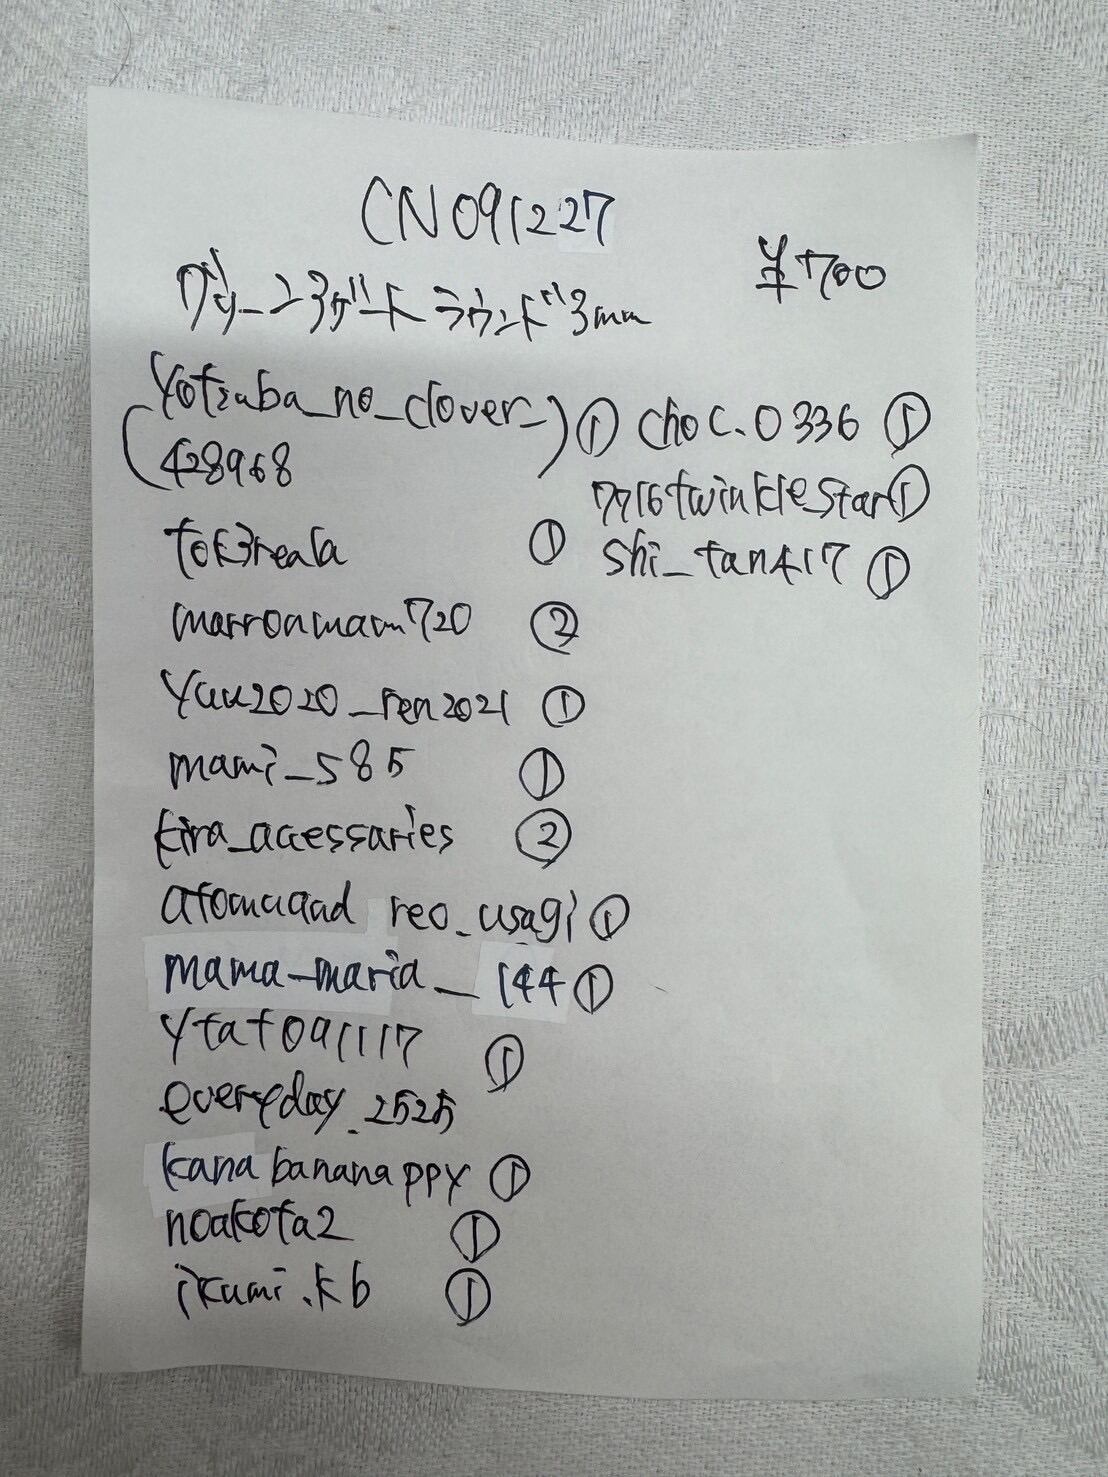 CN091227
¥700
グリーンアゲート ラウンド 3mm
(yotsuba_no_clover_
428968) ①
tok3reala ①
marronmam720 ②
yuu2020_ren2021 ①
mami_585 ①
kira_accessaries ②
reo_usagi ①
mama_maria_144 ①
ytat091117 ①
everyday_2525
kanabananappy ①
noakota2 ①
ikumi.kb ①
choc.0336 ①
7716twinkle_star ①
shi_tan417 ①